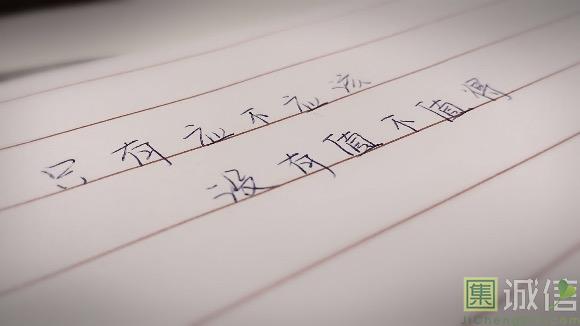 只有应不应该
没有值不值得
集诚信